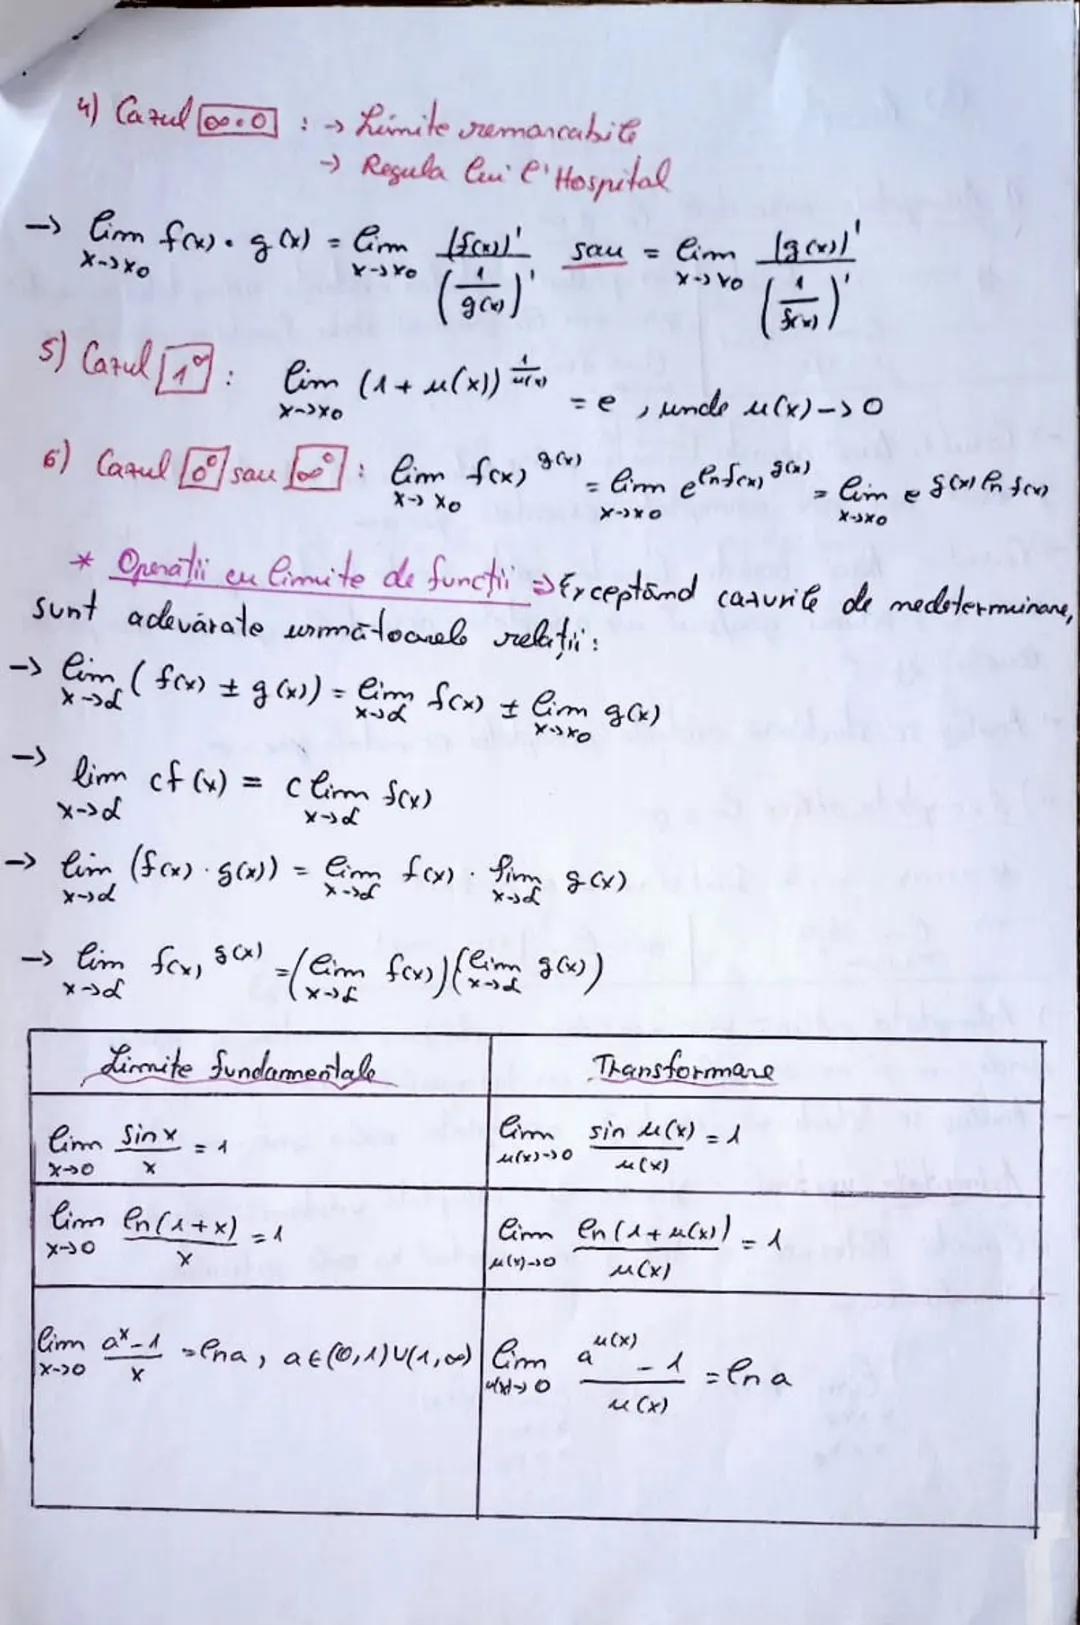 4) Cazul ∞·0 : → Limite remarcabile
→ Regula lui l'Hospital
→ lim x→x0 f(x) · g(x) = lim x→x0 (f(x))' / (1/g(x))' sau = lim x→x0 (g(x))' / (1/f(x))'
5) Cazul 1^∞ : lim x→x0 (1 + u(x))^(1/u(x)) = e , unde u(x) → 0
6) Cazul 0^0 sau ∞^0 : lim x→x0 f(x)^g(x) = lim x→x0 e^(ln f(x)^g(x)) = lim x→x0 e^(g(x) ln f(x))
* Operații cu limite de funcții => Exceptând cazurile de nedeterminare,
sunt adevărate următoarele relații :
→ lim x→α ( f(x) ± g(x)) = lim x→α f(x) ± lim x→x0 g(x)
→ lim x→α cf(x) = c lim x→α f(x)
→ lim x→α (f(x) · g(x)) = lim x→α f(x) · lim x→α g(x)
→ lim x→α f(x)^g(x) = (lim x→α f(x)) (lim x→α g(x))
Limite fundamentale Transformare
lim x→0 sin x / x = 1 lim u(x)→0 sin u(x) / u(x) = 1
lim x→0 ln(1+x) / x = 1 lim u(x)→0 ln(1+u(x)) / u(x) = 1
lim x→0 (a^x - 1) / x = ln a , a ∈ (0,1) ∪ (1,∞) lim u(x)→0 (a^u(x) - 1) / u(x) = ln a